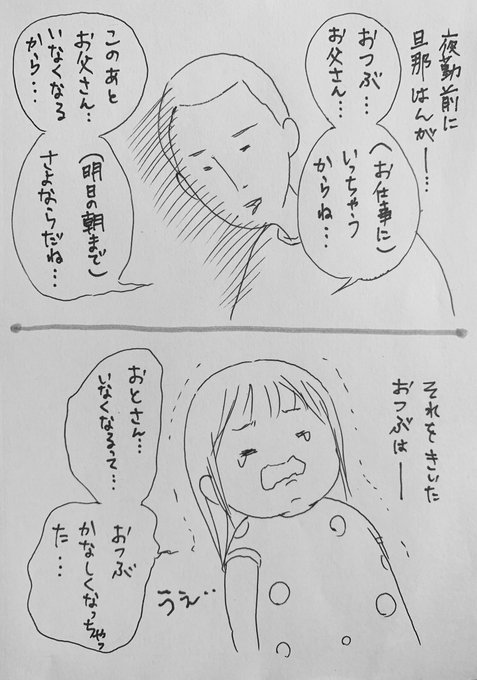 夜勤前に
旦那はんがー…
おつぶ…
お父さん…
(お仕事に)
いっちゃう
からね…
このあと
お父さん…
いなくなる
から…
(明日の朝まで)
さよならだね…
それをきいた
おつぶはー
おとさん…
いなくなるって…
おつぶ
かなしくなっちゃっ
た…
うえ…